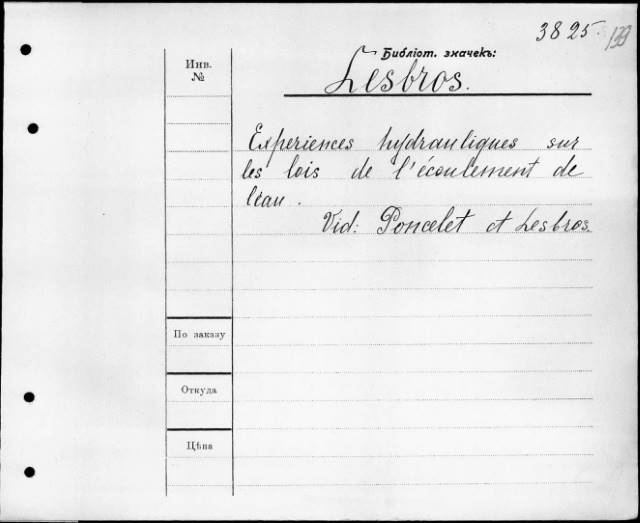 3825. 133
Библіот. значекъ:
Инв.
№
Lesbros.
Experiences hydrauliques sur
les lois de l'écoulement de
l'eau.
Vid: Poncelet et Lesbros.
По заказу
Откуда
Цѣна